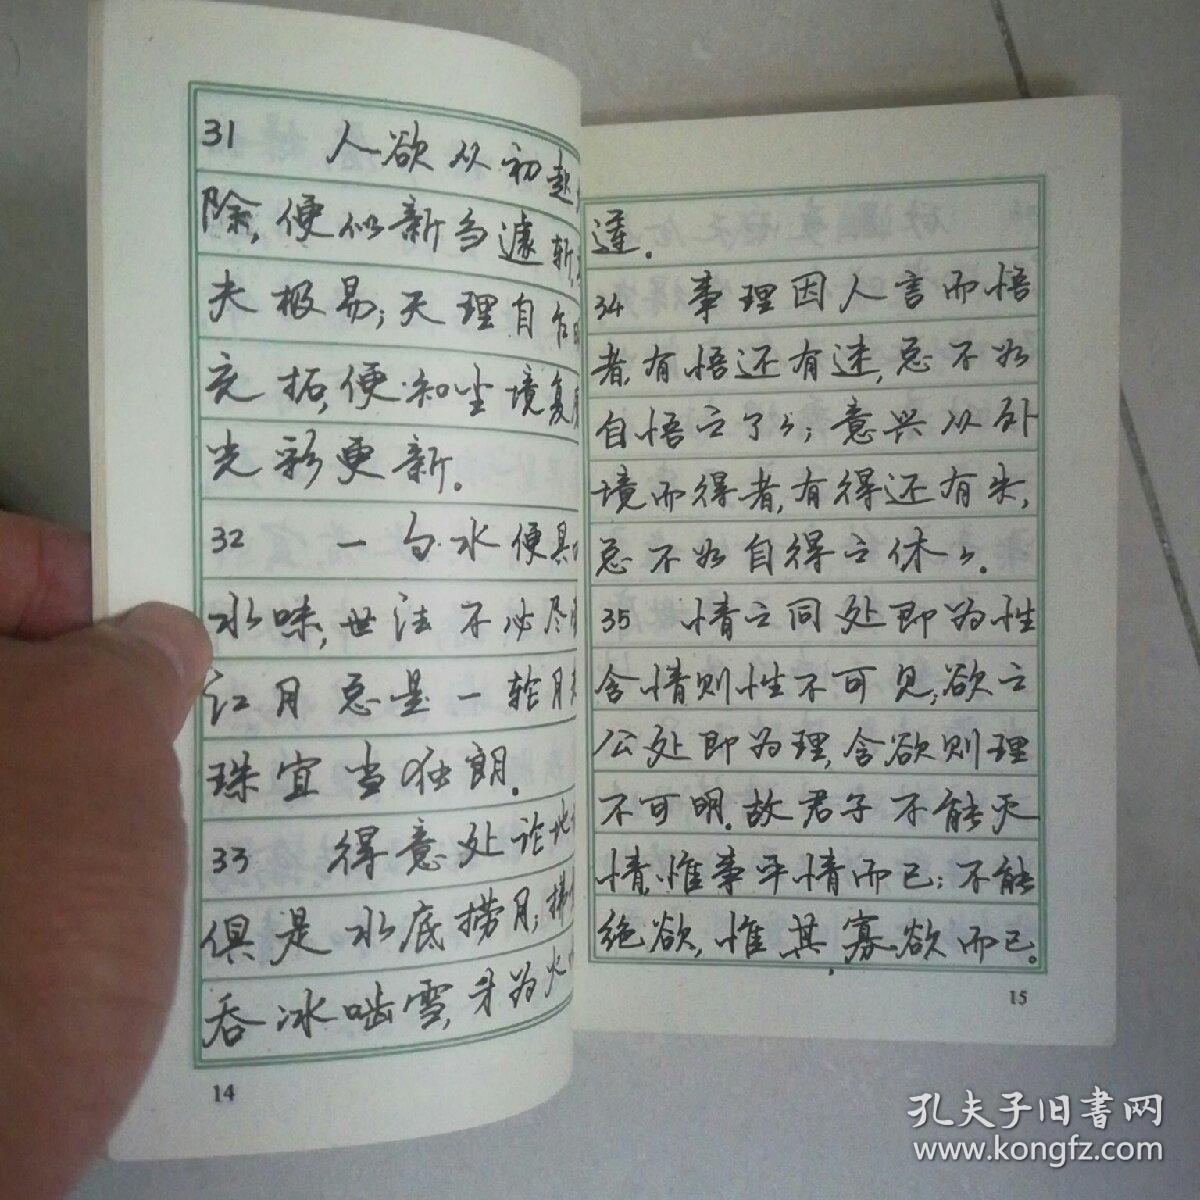 31 人欲从初起
除,便似新刍遽斩,
夫极易;天理自乍
充拓,便如尘境复
光彩更新。
32 一勺水便具
水味,世法不必尽
江月总是一轮月
珠宜当独朗。
33 得意处论地
俱是水底捞月;拂
吞冰啮雪,才为火
14
莲。
34 事理因人言而悟
者,有悟还有迷,总不如
自悟之了了;意兴从外
境而得者,有得还有失,
总不如自得之休休。
35 情之同处即为性
舍情则性不可见;欲之
公处即为理,舍欲则理
不可明。故君子不能灭
情,惟事平情而已;不能
绝欲,惟其寡欲而已。
15
孔夫子旧书网
www.kongfz.com